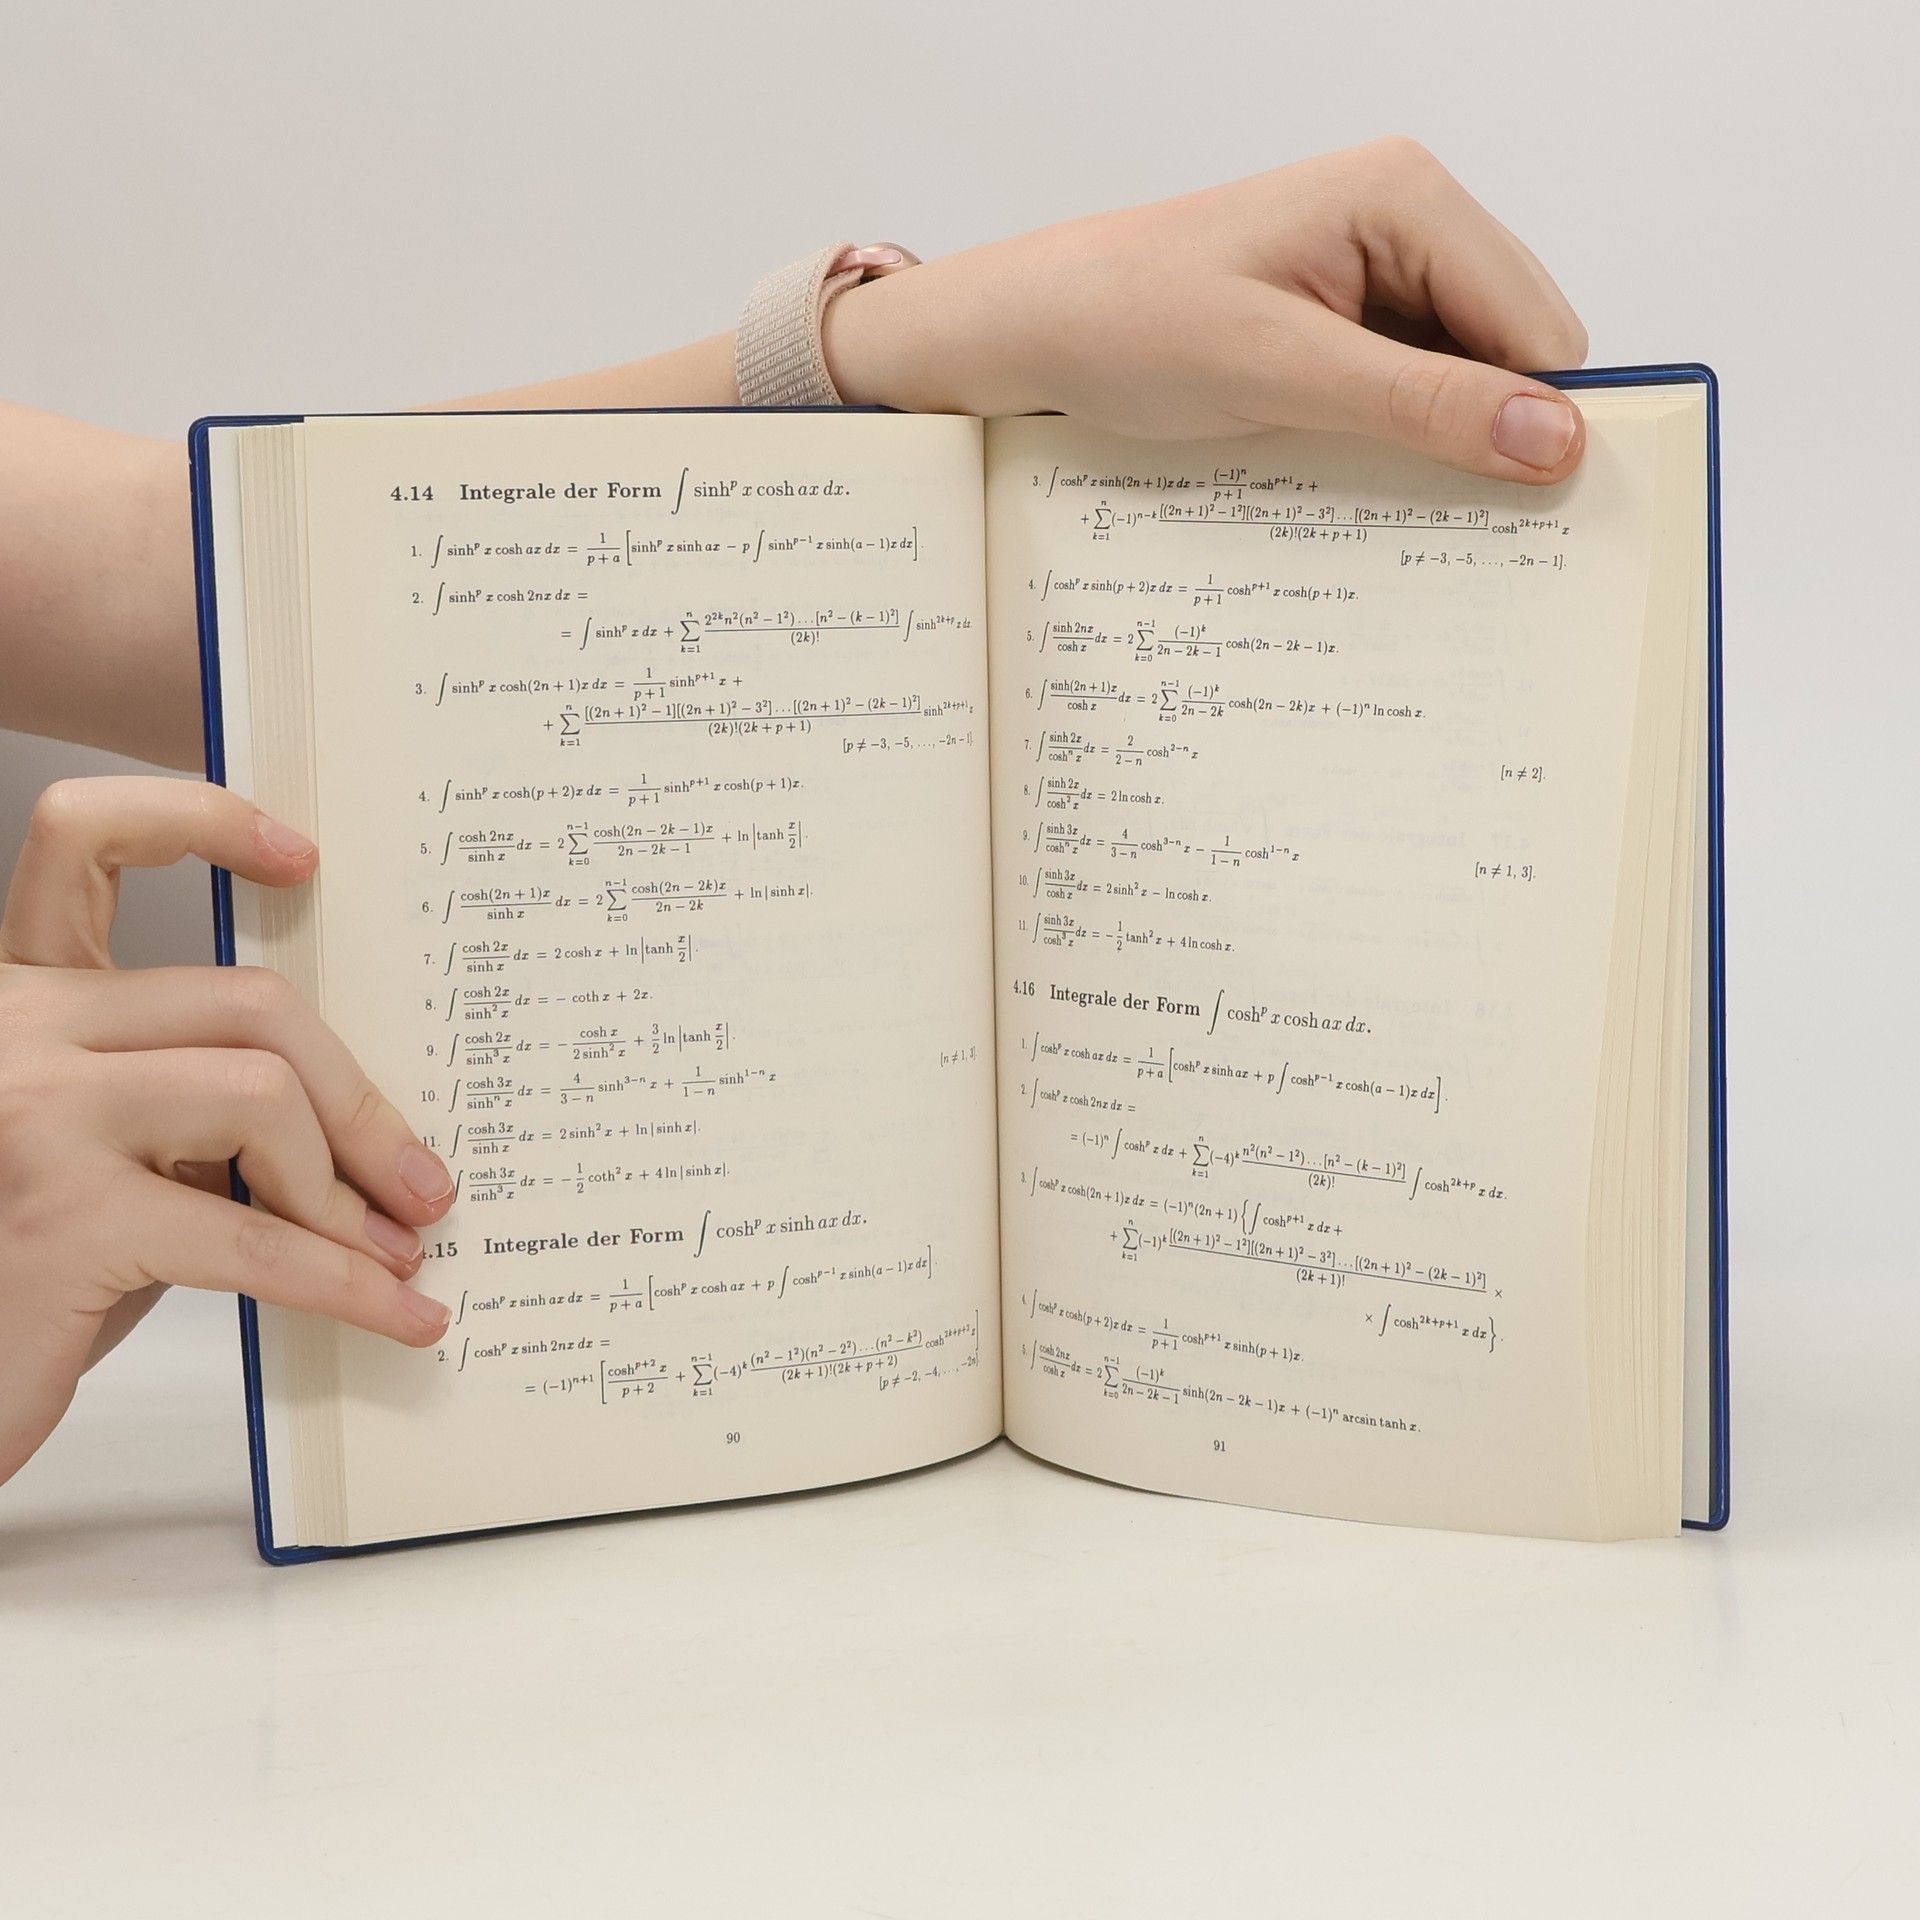 4.14 Integrale der Form ∫ sinh^p x cosh ax dx.
1. ∫ sinh^p x cosh ax dx = 1/(p + a) [sinh^p x sinh ax − p ∫ sinh^{p−1} x sinh(a − 1)x dx].
2. ∫ sinh^p x cosh 2nx dx =
= ∫ sinh^p x dx + ∑_{k=1}^{n} 2^{2k}n²(n² − 1²)…[n² − (k − 1)²]/(2k)! ∫ sinh^{2k+p} x dx.
3. ∫ sinh^p x cosh(2n + 1)x dx = 1/(p + 1) sinh^{p+1} x +
+ ∑_{k=1}^{n} [(2n + 1)² − 1][(2n + 1)² − 3²]…[(2n + 1)² − (2k − 1)²]/((2k)!(2k + p + 1)) sinh^{2k+p+1} x
[p ≠ −3, −5, …, −2n − 1].
4. ∫ sinh^p x cosh(p + 2)x dx = 1/(p + 1) sinh^{p+1} x cosh(p + 1)x.
5. ∫ (cosh 2nx)/(sinh x) dx = 2 ∑_{k=0}^{n−1} cosh(2n − 2k − 1)x/(2n − 2k − 1) + ln |tanh x/2|.
6. ∫ cosh(2n + 1)x/(sinh x) dx = 2 ∑_{k=0}^{n−1} cosh(2n − 2k)x/(2n − 2k) + ln | sinh x|.
7. ∫ (cosh 2x)/(sinh x) dx = 2 cosh x + ln |tanh x/2|.
8. ∫ (cosh 2x)/(sinh² x) dx = − coth x + 2x.
9. ∫ (cosh 2x)/(sinh³ x) dx = − (cosh x)/(2 sinh² x) + 3/2 ln |tanh x/2|.
10. ∫ (cosh 3x)/(sinh^n x) dx = 4/(3 − n) sinh^{3−n} x + 1/(1 − n) sinh^{1−n} x [n ≠ 1, 3].
11. ∫ (cosh 3x)/(sinh x) dx = 2 sinh² x + ln | sinh x|.
∫ (cosh 3x)/(sinh³ x) dx = − 1/2 coth² x + 4 ln | sinh x|.
.15 Integrale der Form ∫ cosh^p x sinh ax dx.
∫ cosh^p x sinh ax dx = 1/(p + a) [cosh^p x cosh ax + p ∫ cosh^{p−1} x sinh(a − 1)x dx].
2. ∫ cosh^p x sinh 2nx dx =
= (−1)^{n+1} [cosh^{p+2} x/(p + 2) + ∑_{k=1}^{n−1} (−4)^k (n² − 1²)(n² − 2²)…(n² − k²)/((2k + 1)!(2k + p + 2)) cosh^{2k+p+2} x]
[p ≠ −2, −4, …, −2n].
90
3. ∫ cosh^p x sinh(2n + 1)x dx = (−1)^n/(p + 1) cosh^{p+1} x +
+ ∑_{k=1}^{n} (−1)^{n−k} [(2n + 1)² − 1²][(2n + 1)² − 3²]…[(2n + 1)² − (2k − 1)²]/((2k)!(2k + p + 1)) cosh^{2k+p+1} x
[p ≠ −3, −5, …, −2n − 1].
4. ∫ cosh^p x sinh(p + 2)x dx = 1/(p + 1) cosh^{p+1} x cosh(p + 1)x.
5. ∫ (sinh 2nx)/(cosh x) dx = 2 ∑_{k=0}^{n−1} (−1)^k/(2n − 2k − 1) cosh(2n − 2k − 1)x.
6. ∫ sinh(2n + 1)x/(cosh x) dx = 2 ∑_{k=0}^{n−1} (−1)^k/(2n − 2k) cosh(2n − 2k)x + (−1)^n ln cosh x.
7. ∫ (sinh 2x)/(cosh^n x) dx = 2/(2 − n) cosh^{2−n} x [n ≠ 2].
8. ∫ (sinh 2x)/(cosh² x) dx = 2 ln cosh x.
9. ∫ (sinh 3x)/(cosh^n x) dx = 4/(3 − n) cosh^{3−n} x − 1/(1 − n) cosh^{1−n} x [n ≠ 1, 3].
10. ∫ (sinh 3x)/(cosh x) dx = 2 sinh² x − ln cosh x.
11. ∫ (sinh 3x)/(cosh³ x) dx = − 1/2 tanh² x + 4 ln cosh x.
4.16 Integrale der Form ∫ cosh^p x cosh ax dx.
1. ∫ cosh^p x cosh ax dx = 1/(p + a) [cosh^p x sinh ax + p ∫ cosh^{p−1} x cosh(a − 1)x dx].
2. ∫ cosh^p x cosh 2nx dx =
= (−1)^n ∫ cosh^p x dx + ∑_{k=1}^{n} (−4)^k n²(n² − 1²)…[n² − (k − 1)²]/(2k)! ∫ cosh^{2k+p} x dx.
3. ∫ cosh^p x cosh(2n + 1)x dx = (−1)^n(2n + 1) {∫ cosh^{p+1} x dx +
+ ∑_{k=1}^{n} (−1)^k [(2n + 1)² − 1²][(2n + 1)² − 3²]…[(2n + 1)² − (2k − 1)²]/(2k + 1)! ×
× ∫ cosh^{2k+p+1} x dx}.
4. ∫ cosh^p x cosh(p + 2)x dx = 1/(p + 1) cosh^{p+1} x sinh(p + 1)x.
5. ∫ (cosh 2nx)/(cosh x) dx = 2 ∑_{k=0}^{n−1} (−1)^k/(2n − 2k − 1) sinh(2n − 2k − 1)x + (−1)^n arcsin tanh x.
91